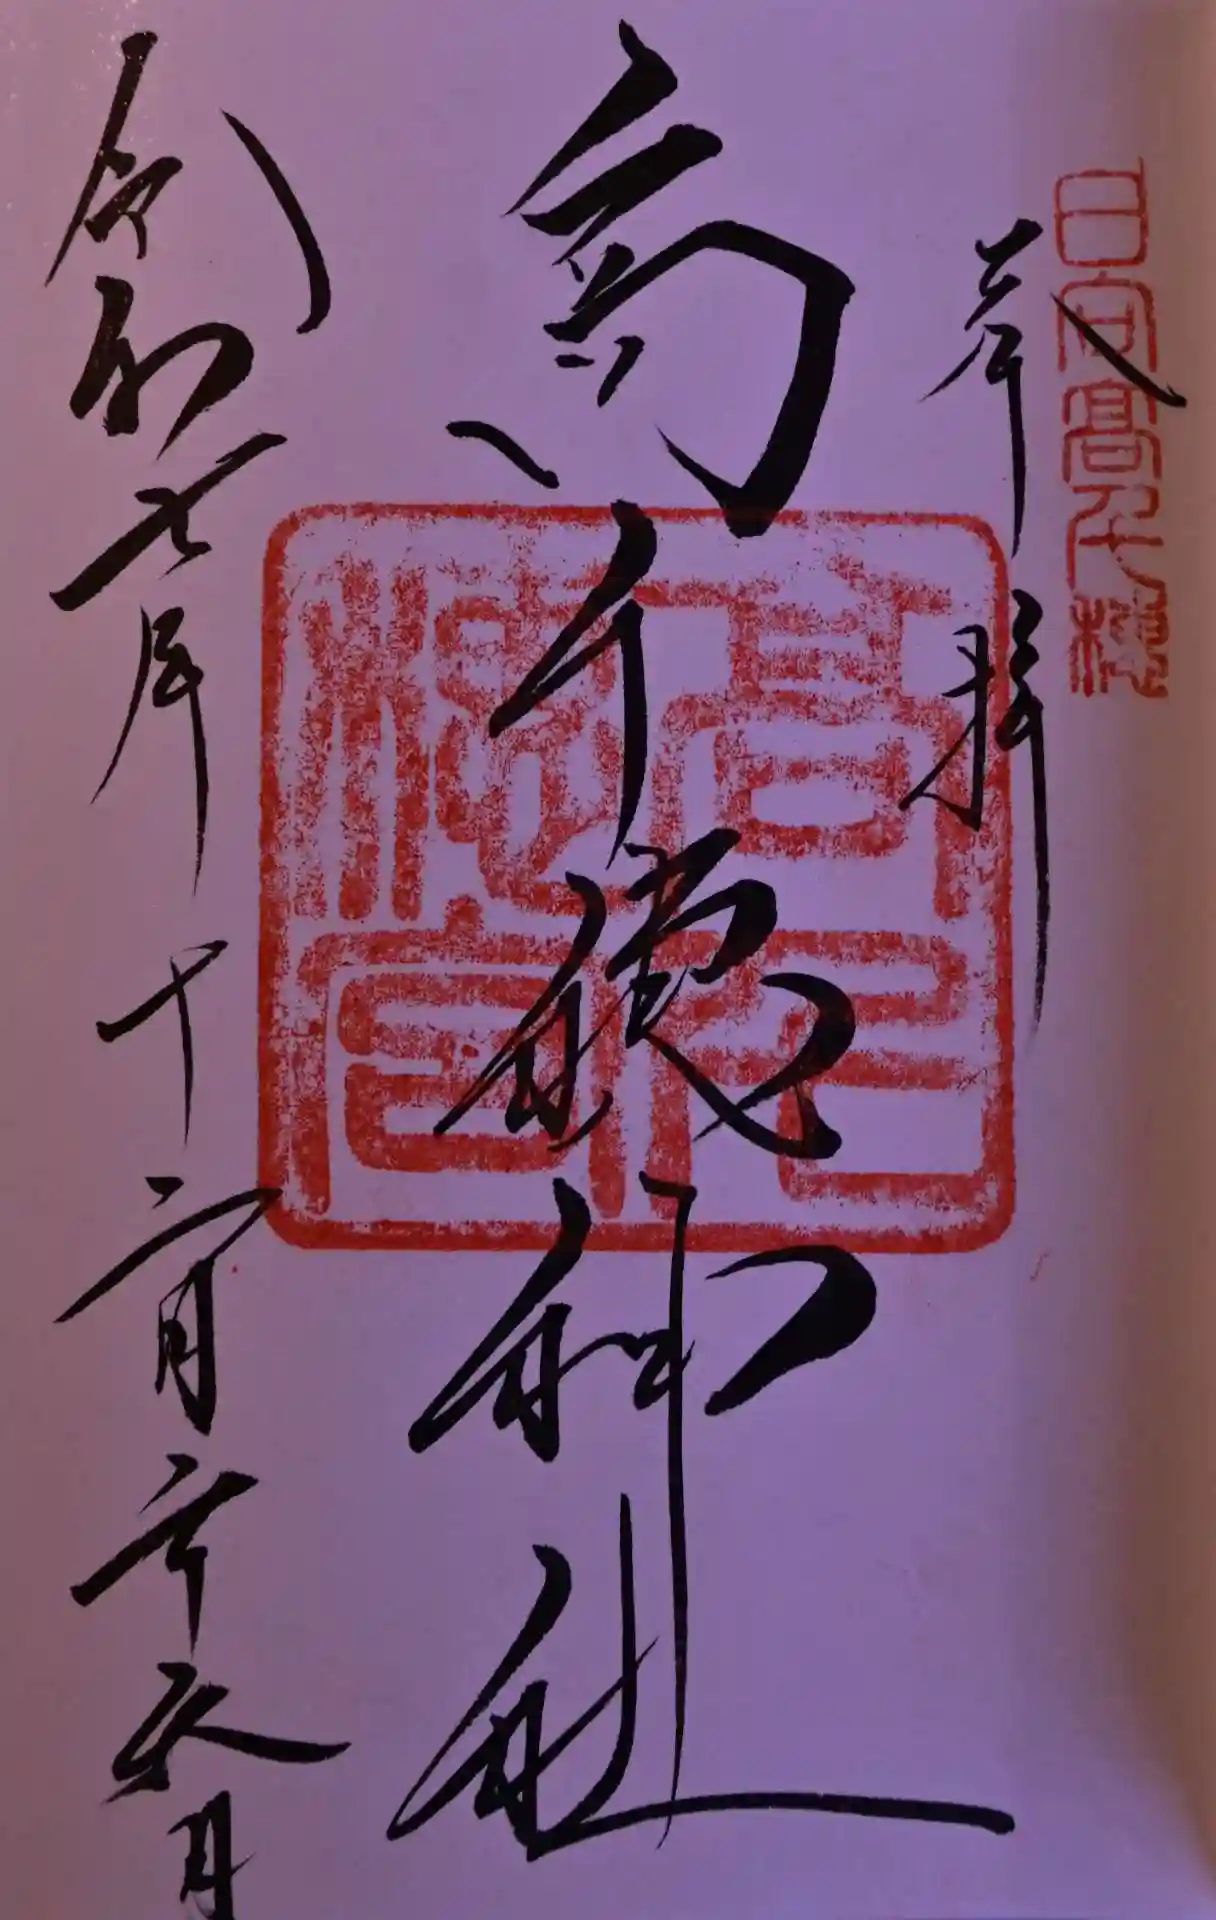 日向高千穂
奉拝
高千穂神社
高千
穂宮
令和七年十二月二十六日